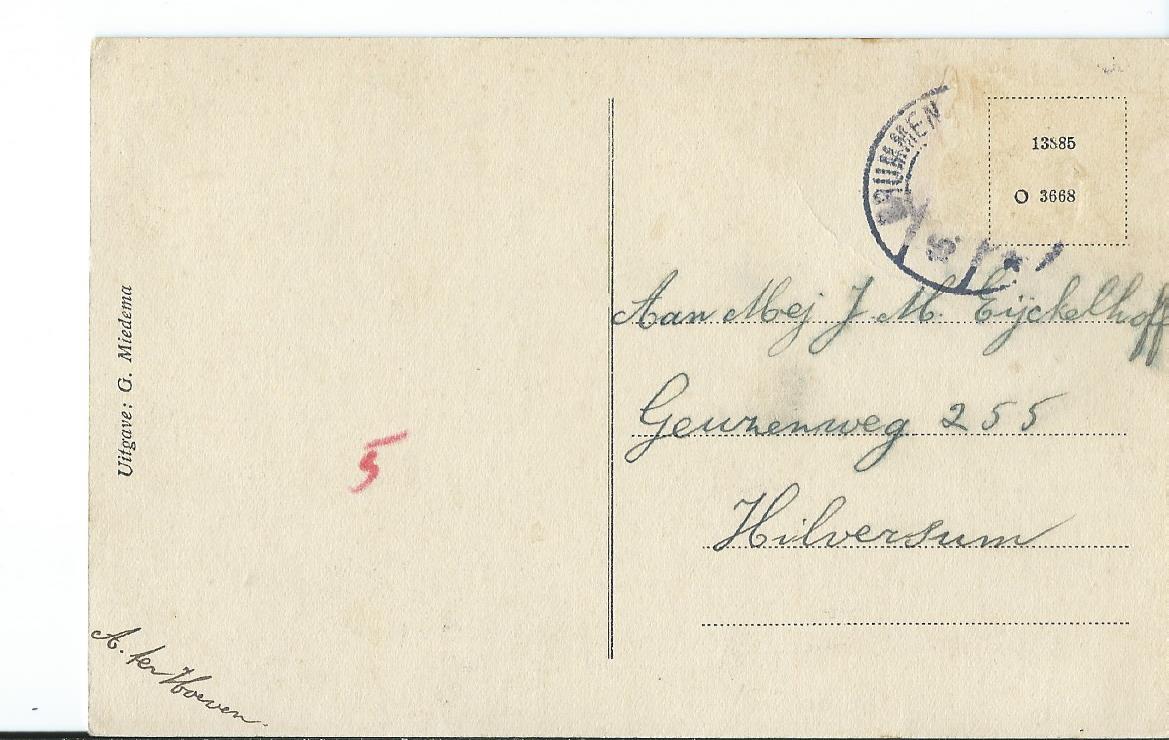 Uitgave: G. Miedema
5
A. ter Hoeven.
BRUMMEN
13885
O 3668
Aan Mej J. M. Eijckelhoff
Geuzenweg 255
Hilversum